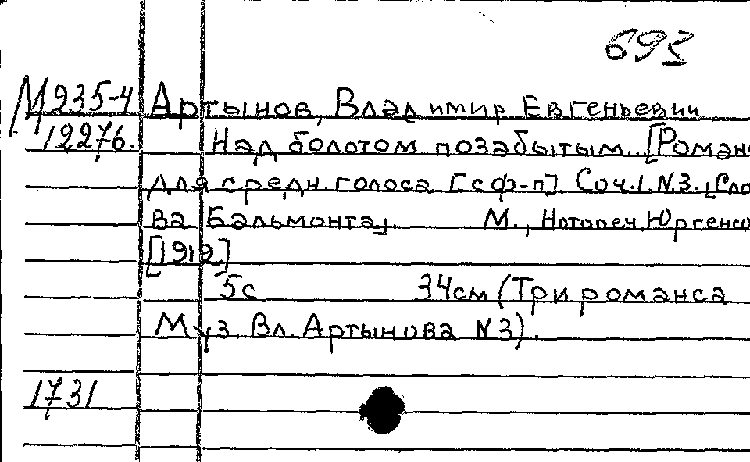 693
М 235-4 Артынов, Владимир Евгеньевич
12276. Над болотом позабытым. [Романс
для средн. голоса [с ф-п] Соч. 1 N3. [Сло
ва Бальмонта] М., Нотопеч. Юргенсо
[1912]
5с 34см (Три романса
Муз. Вл. Артынова N3).
1731